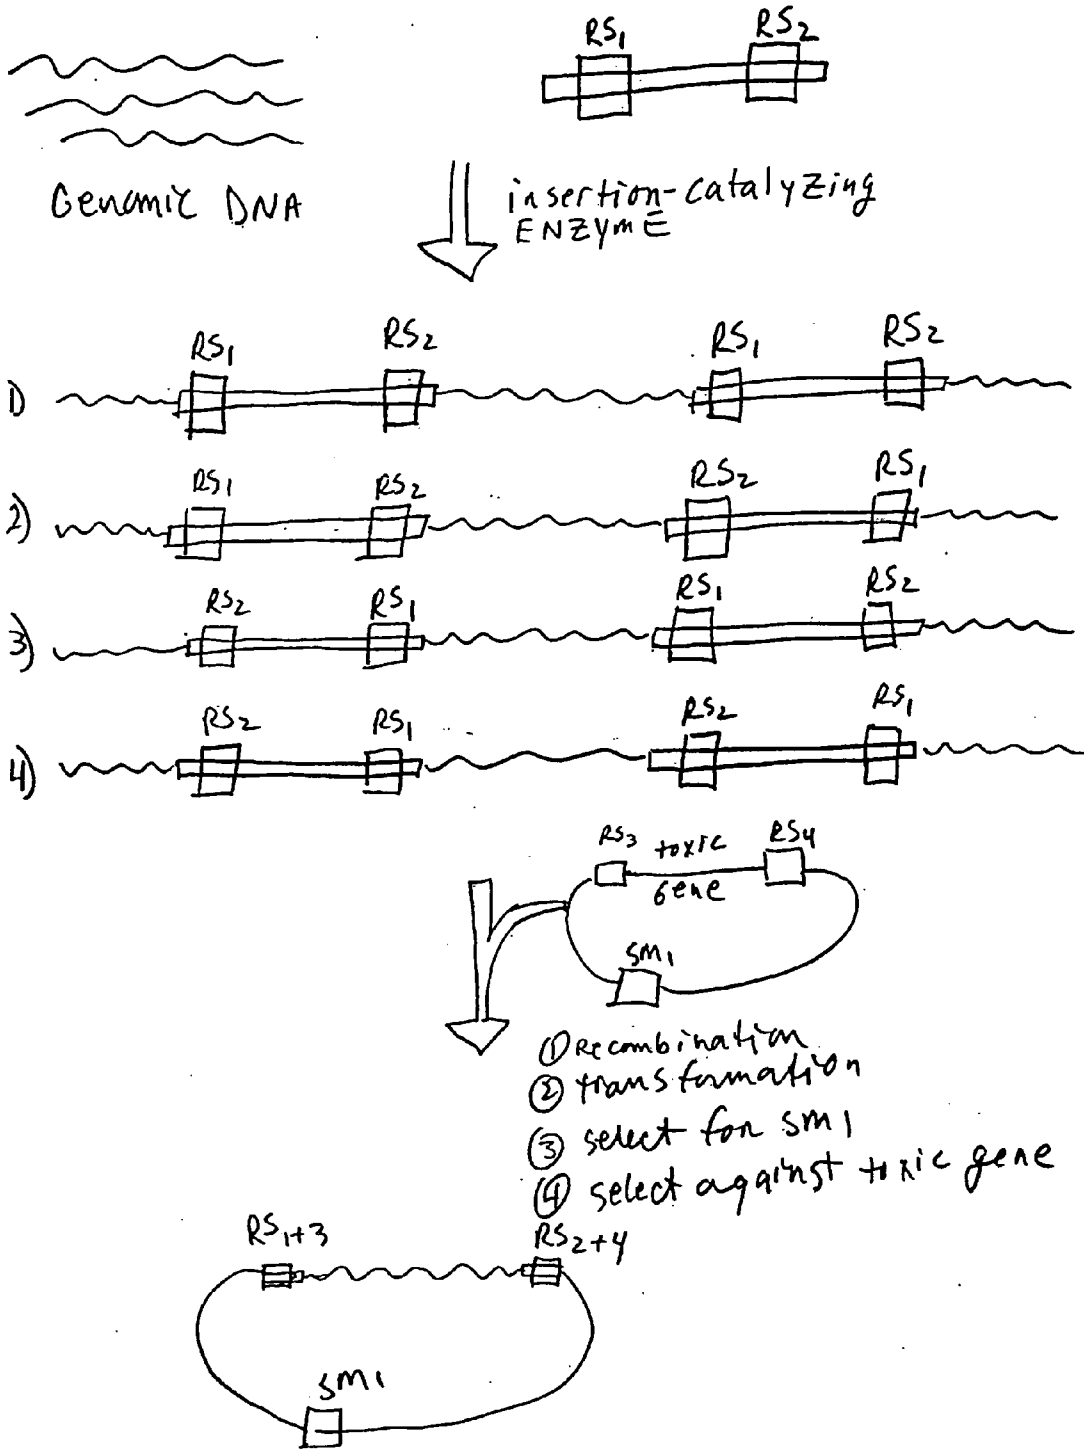 RS1 RS2
Genomic DNA
insertion-catalyzing
ENZYME
RS1 RS2 RS1 RS2
1)
RS1 RS2 RS2 RS1
2)
RS2 RS1 RS1 RS2
3)
RS2 RS1 RS2 RS1
4)
RS3 toxic RS4
Gene
SM1
① Recombination
② transformation
③ select for SM1
④ select against toxic gene
RS1+3 RS2+4
SM1